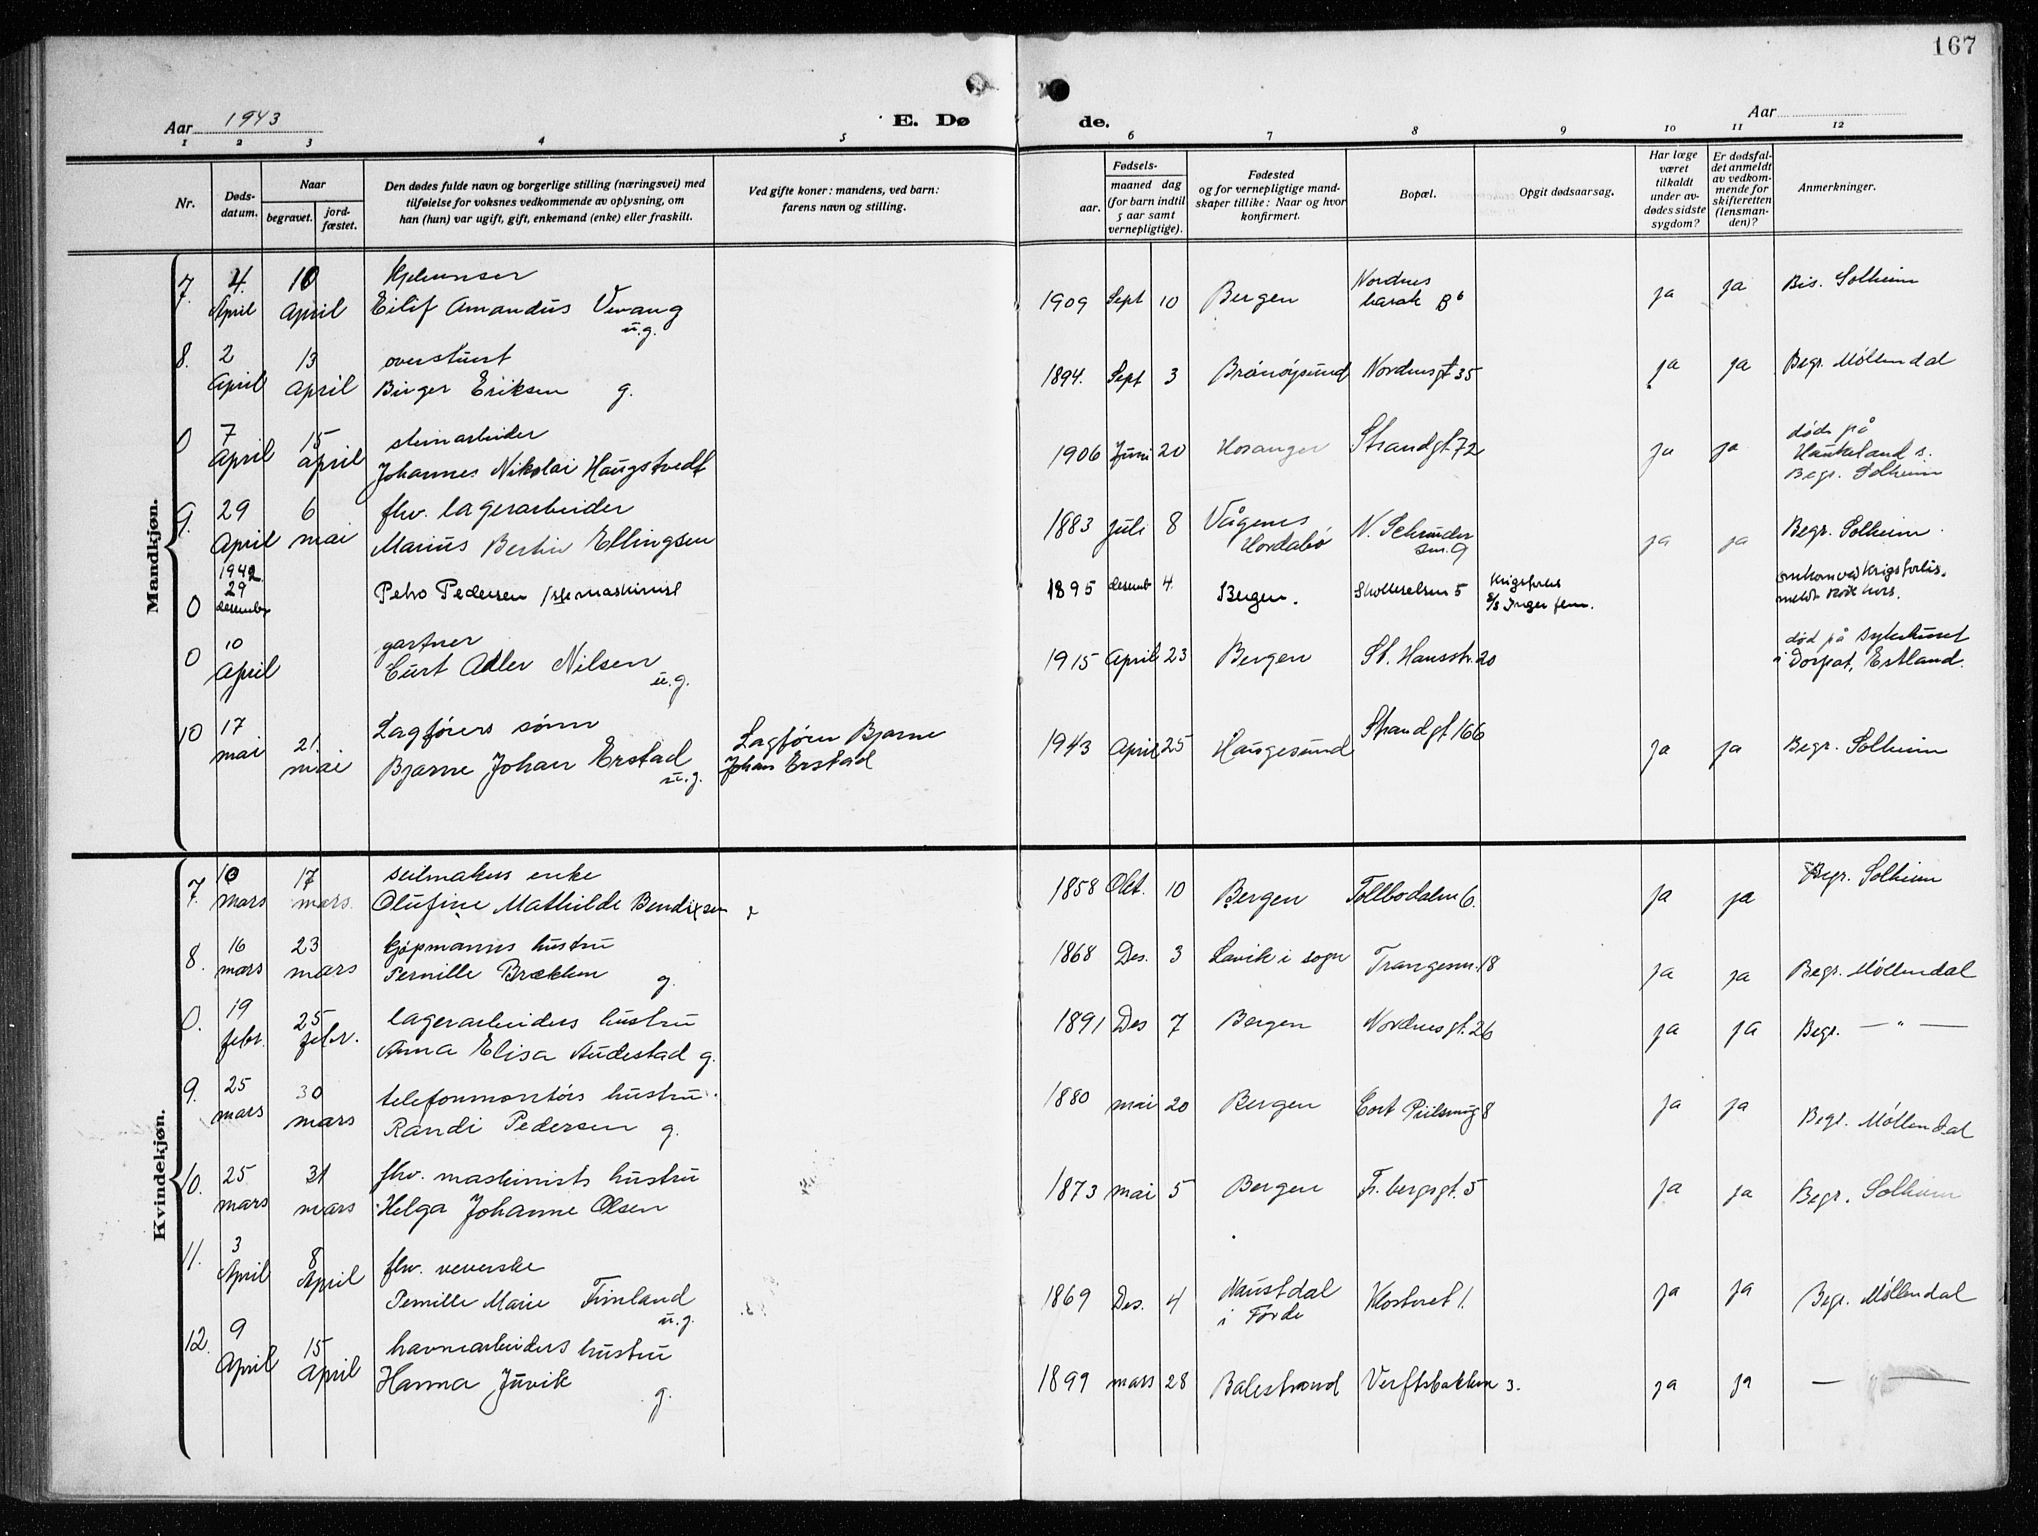 167
Aar 1943
E. Dø de.
Aar
1 2 3 4 5 6 7 8 9 10 11 12
Nr.
Døds-
datum.
Naar
begravet.
jord-
fæstet.
Den dødes fulde navn og borgerlige stilling (næringsvei) med
tilføielse for voksnes vedkommende av oplysning, om
han (hun) var ugift, gift, enkemand (enke) eller fraskilt.
Ved gifte koner: mandens, ved barn:
farens navn og stilling.
Fødsels-
aar.
maaned dag
(for barn indtil
5 aar samt
vernepligtige).
Fødested
og for vernepligtige mand-
skaper tillike: Naar og hvor
konfirmert.
Bopæl.
Opgit dødsaarsag.
Har læge
været
tilkaldt
under av-
dødes sidste
sygdom?
Er dødsfal-
det anmeldt
av vedkom-
mende for
skifteretten
(lensman-
den)?
Anmerkninger.
Mandkjøn.
7. 4. 10
April April Eilif Amandus Vevang
u.g.
1909 Sept 10 Bergen
Nordnes
barak B6
ja ja Bis. Solheim
8. 2 13
April April Birger Eriksen g.
1894. Sept 3 Brønøysund Nordnesgt 35 ja ja Begr. Møllendal
0 7 15 steinarbeider
April april Johannes Nikolai Haugstvedt
1906 Juni 20 Hosanger Strandgt. 72 ja ja
død på
Haukeland s.
Begr. Solheim
9. 29 6 fhv. lagerarbeider
April mai Marius Bertin Ellingsen
1883 juli 8 Vågenes
Hordabø
ja ja Begr. Solheim.
1942
29
desember
0 Petro Pedersen /ste maskinist
1895 desemb 4. Bergen.
Krigsforlis
omkom ved krigsforlis.
0 10 gartner
April Curt Adler Nilsen
u.g.
1915 April 23 Bergen St. Hansstr. 20
død på sykehuset
i Dorpat, Estland.
10 17 21. Lagførers sønn
mai mai Bjarne Johan Erstad
u.g.
Lagfører Bjarne
Johan Erstad
1943 April 25 Haugesund Strandgt 166 ja ja Begr. Solheim
Kvindekjøn.
7. 10 17 seilmakers enke
mars mars. Olufine Mathilde Bendixsen
1858 Okt. 10 Bergen Tollbodalm 6. ja ja Begr. Solheim
8. 16 23 kjøpmanns hustru
mars mars Pernille Brækken g.
1868 Des. 3 Lavik i sogn Trangesm. 18 ja ja Begr. Møllendal
0. 19 25 lagerarbeiders hustru
febr. febr. Anna Elisa Audestad g.
1891 Des 7 Bergen Nordnesgt. 26 ja ja Begr. — " —
9. 25 30 telefonmontørs hustru
mars mars Randi Pedersen g.
1880 mai 20 Bergen Cort Piilsmug 8 ja ja Begr. Møllendal
10. 25 31 fhv. maskinists hustru
mars mars Helga Johanne Olsen
1873 mai 5 Bergen Fr. bergsgt. 5 ja ja Begr. Solheim
11. 3 8 fhv. veverske
April April Pernille Marie Timland
u.g.
1869 Des. 4 Naustdal
i Førde
Klosteret 1. ja ja Begr. Møllendal
12. 9 15 havnearbeiders hustru
April April Hanna Juvik g.
1899 mars 28 Balestrand Verftsbakken 3. ja ja — " —